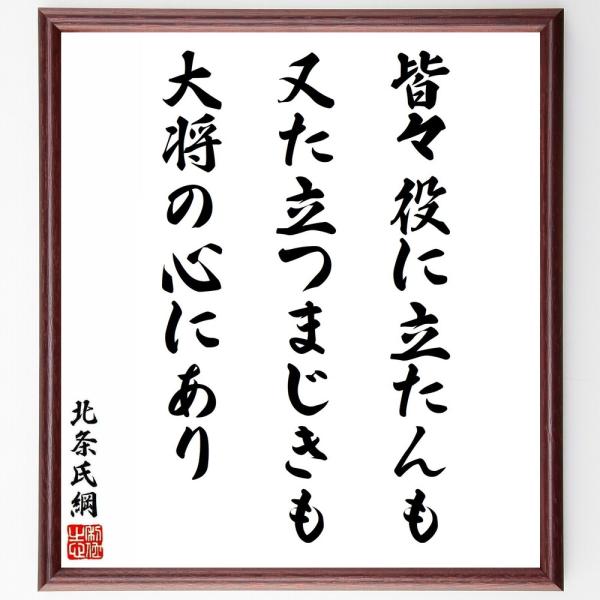 皆々役に立たんも
又た立つまじきも
大将の心にあり
北条氏綱